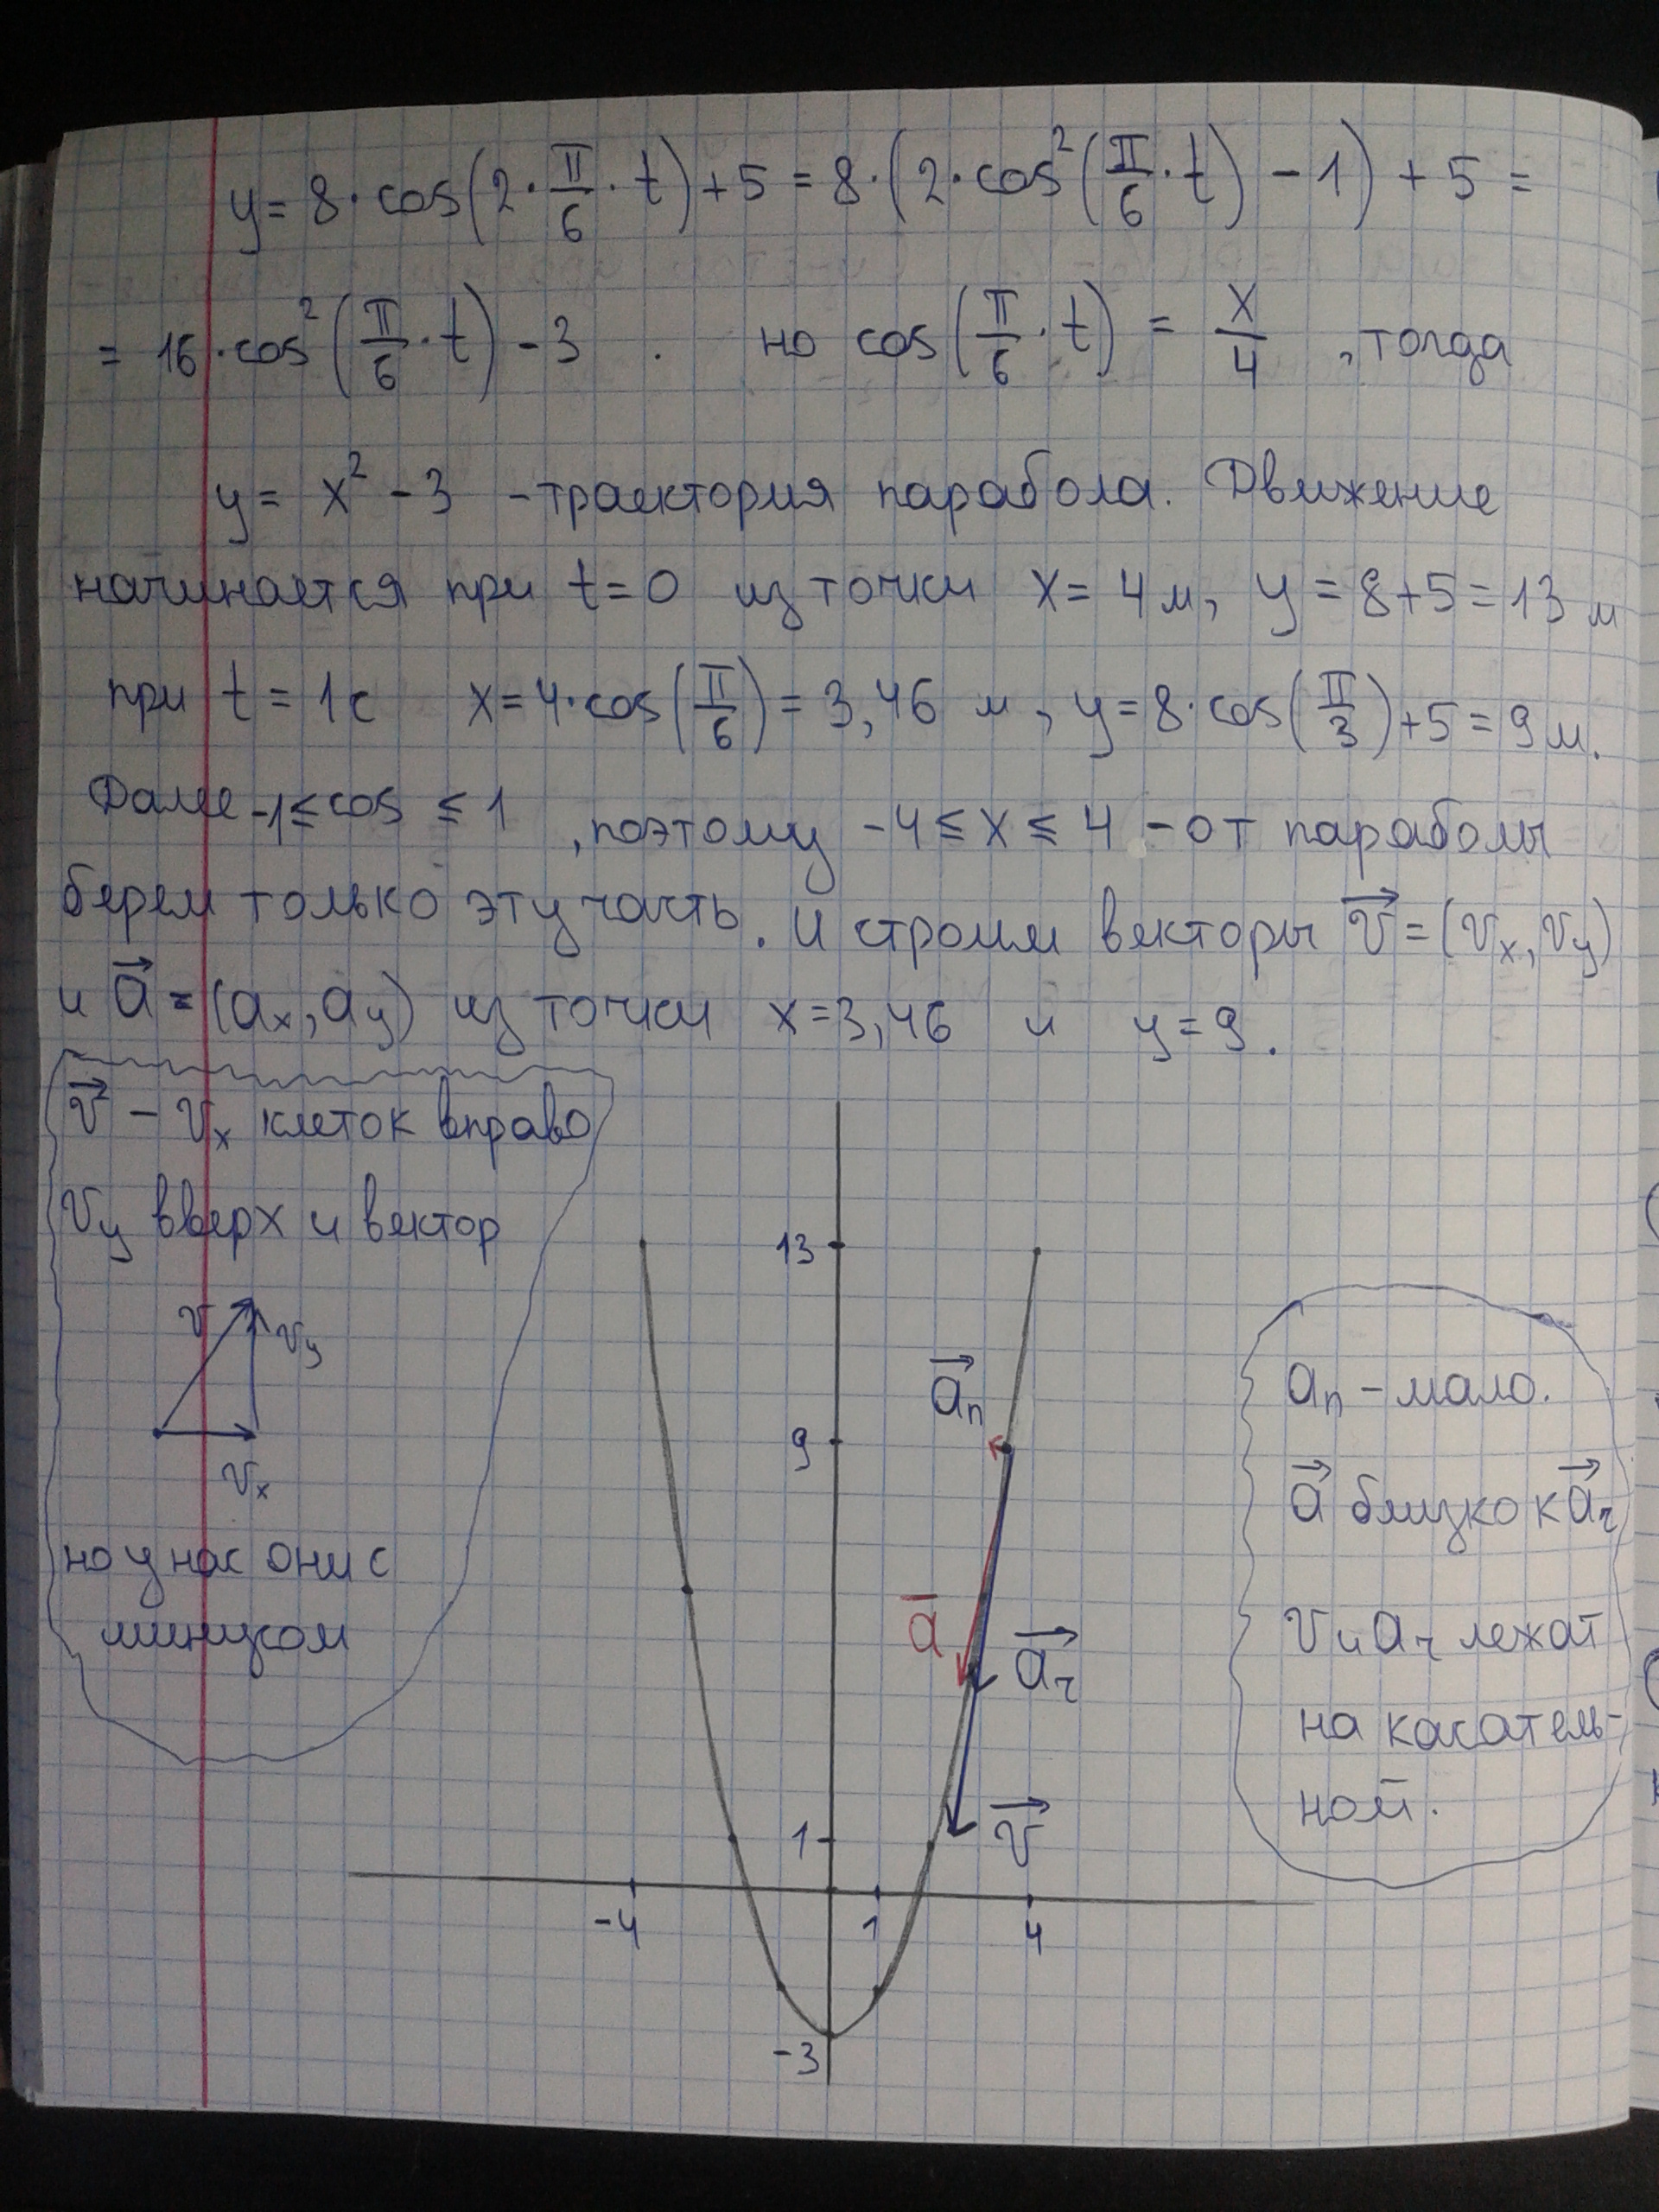 y = 8·cos(2·π/6·t)+5 = 8·(2·cos²(π/6·t) - 1) + 5 =
= 16·cos²(π/6·t) - 3 . но cos(π/6·t) = x/4 , тогда
y = x² - 3 - траектория парабола. Движение
начинается при t=0 из точки x = 4м, y = 8+5 = 13 м
при t = 1с x = 4·cos(π/6) = 3,46 м, y = 8·cos(π/3)+5 = 9м.
Далее -1 ≤ cos ≤ 1 , поэтому -4 ≤ x ≤ 4 - от параболы
берем только эту часть. И строим векторы v⃗ = (vₓ, v_y)
и a⃗ = (aₓ, a_y) из точки x=3,46 и y=9.
v⃗ - vₓ клеток вправо
v_y вверх и вектор
v
v_y
vₓ
но у нас они с
минусом
13
a⃗ₙ
9
a̅
a⃗_τ
1
v⃗
-4
1
4
-3
aₙ - мало.
a⃗ близко к a⃗_τ
v и a_τ лежат
на касатель-
ной.